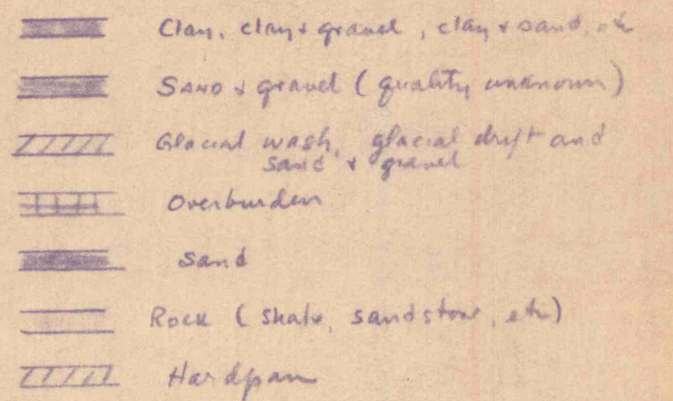 Clay, clay & gravel, clay & sand, etc
Sand & gravel (quality unknown)
Glacial wash, glacial drift and
sand & gravel
Overburden
Sand
Rock (shale, sandstone, etc)
Hardpan